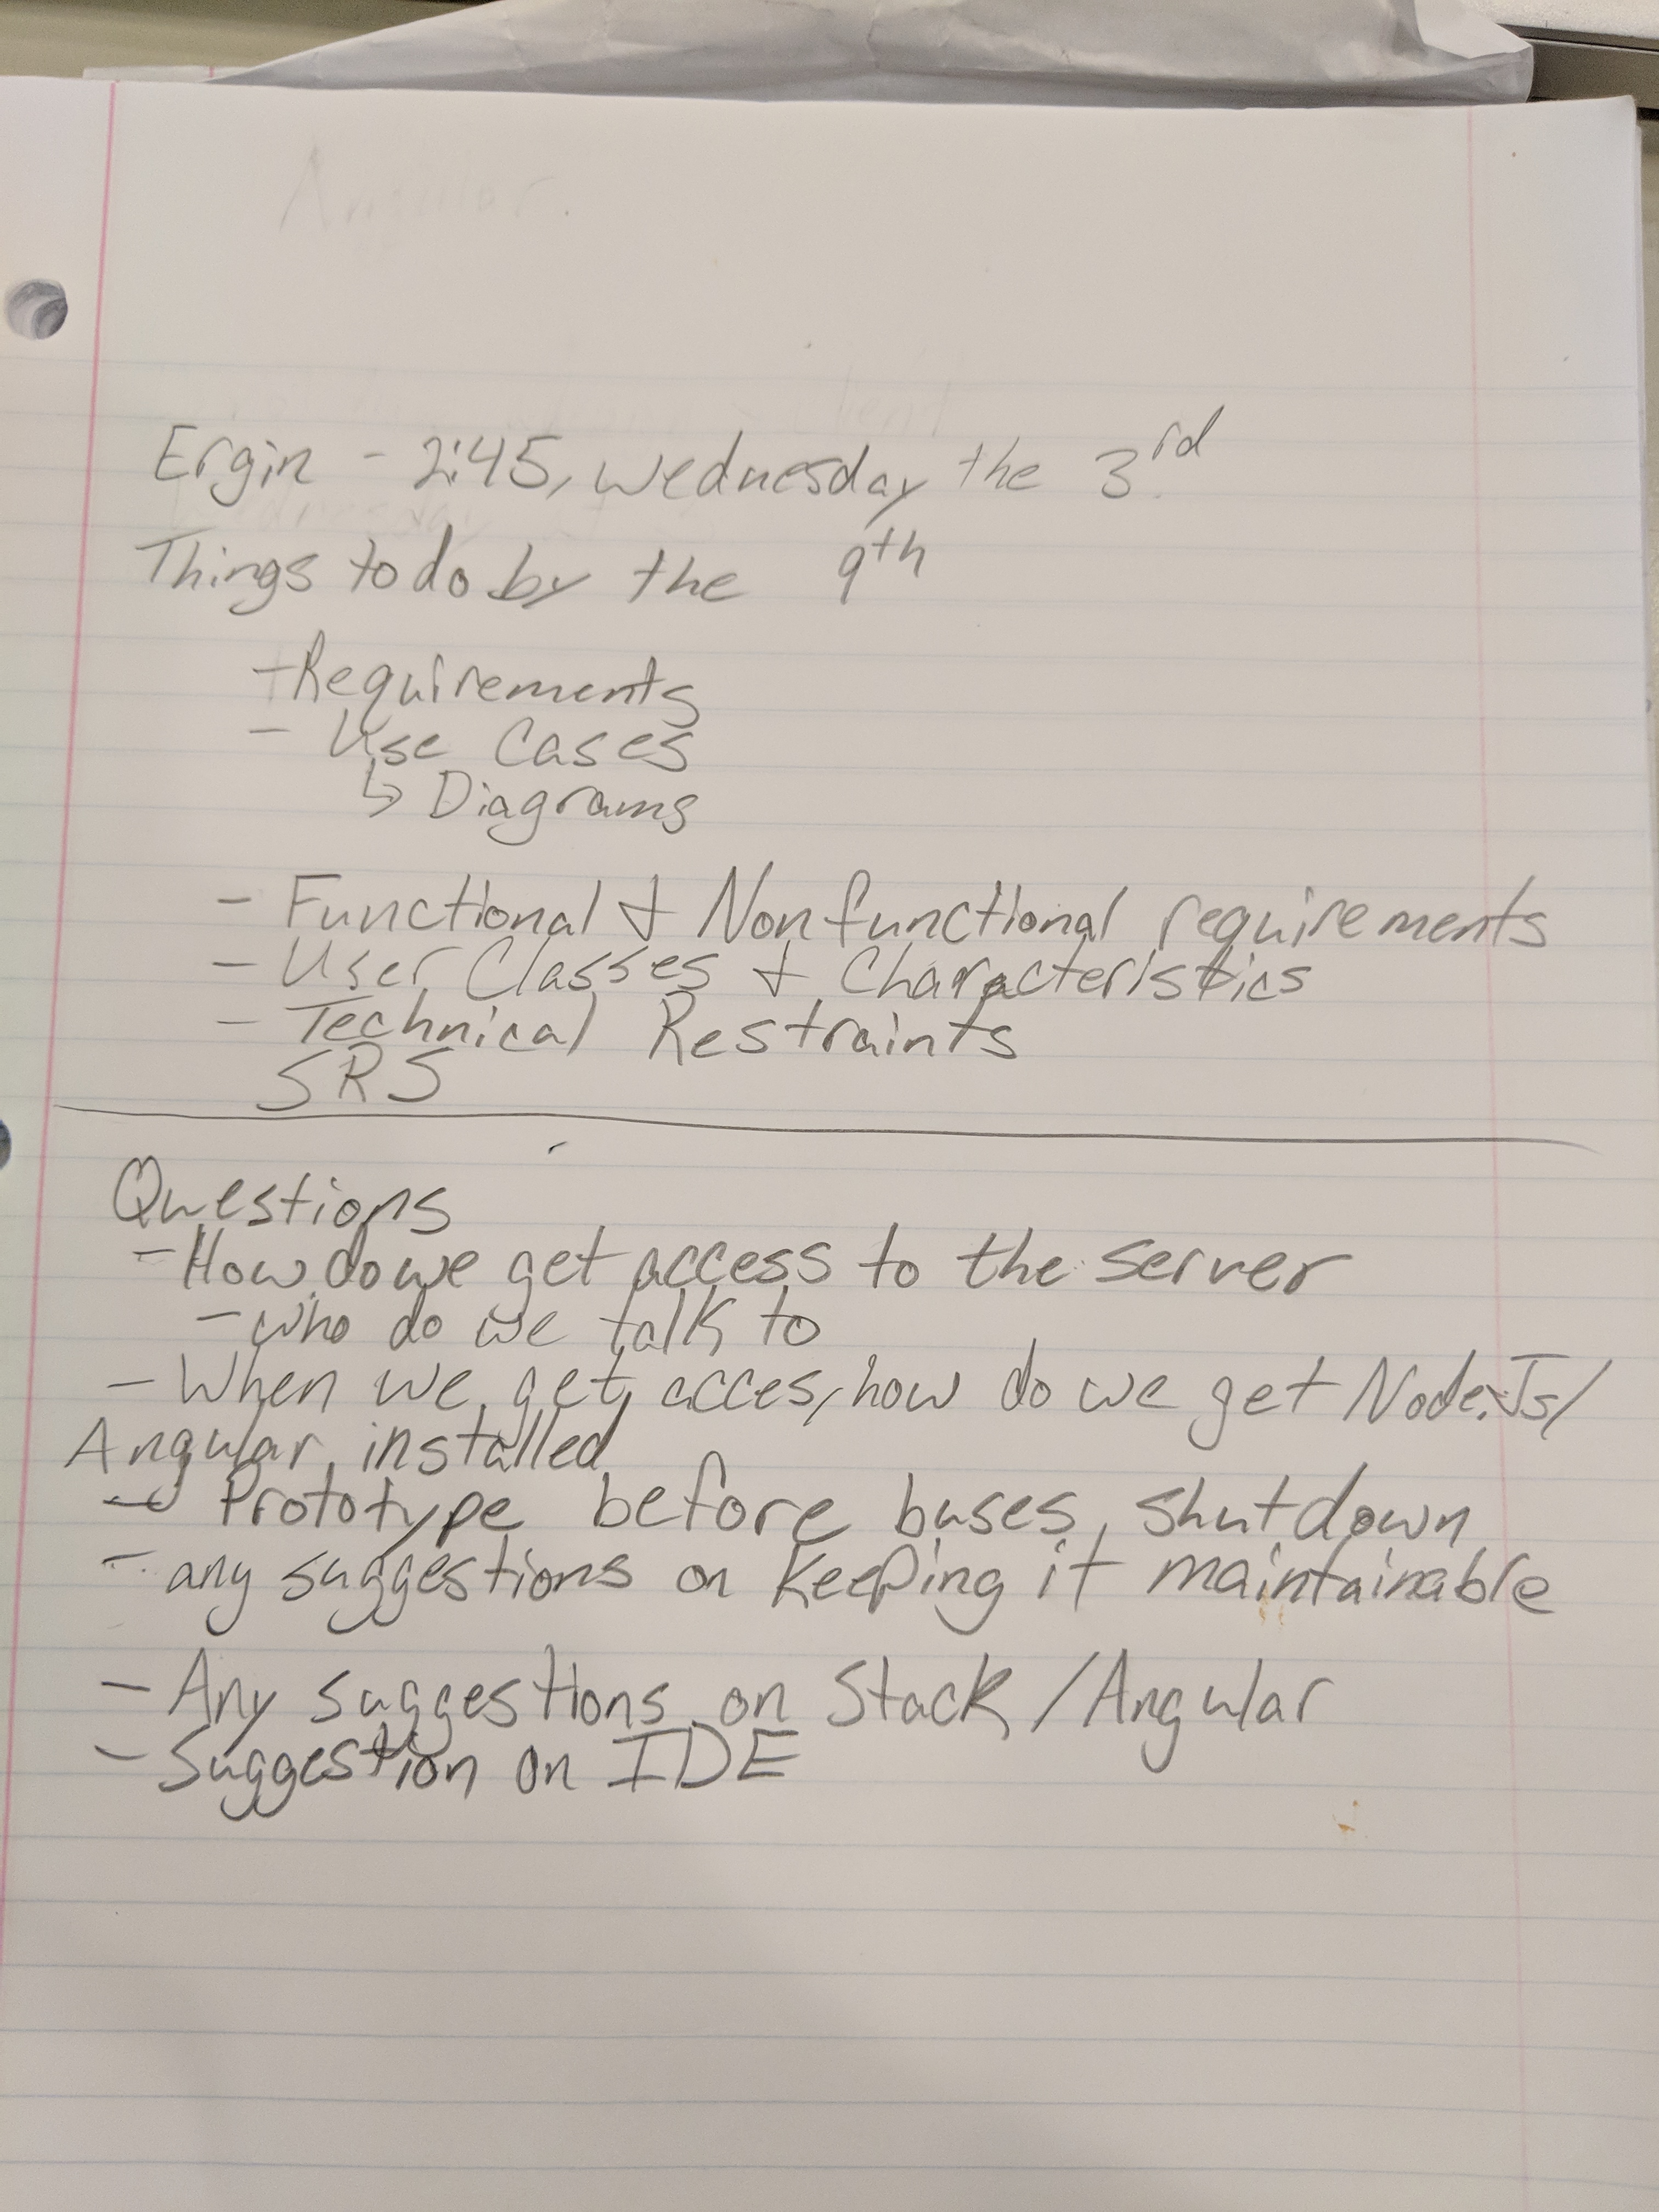 Angular.
Ergin - 2:45, Wednesday the 3rd
Things to do by the 9th
- Requirements
- Use Cases
↳ Diagrams
- Functional + Nonfunctional requirements
- User Classes + Characteristics
- Technical Restraints
SRS
Questions
- How do we get access to the server
- who do we talk to
- When we get acces, how do we get Node.Js/
Angular installed
- Prototype before buses, shutdown
- any suggestions on keeping it maintainable
- Any suggestions on Stack / Angular
- Suggestion on IDE